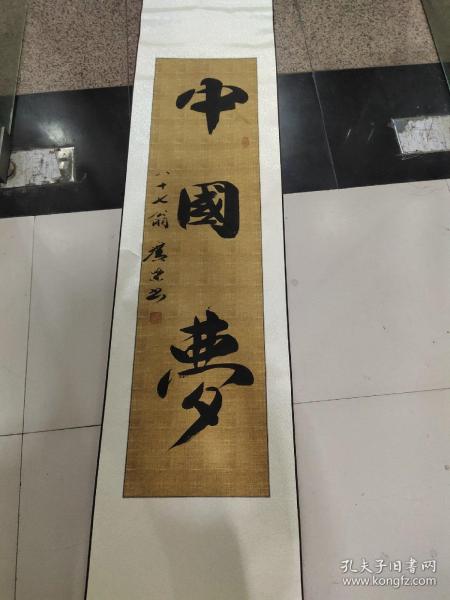 中國夢
八十七翁
孔夫子旧书网
www.kongfz.com